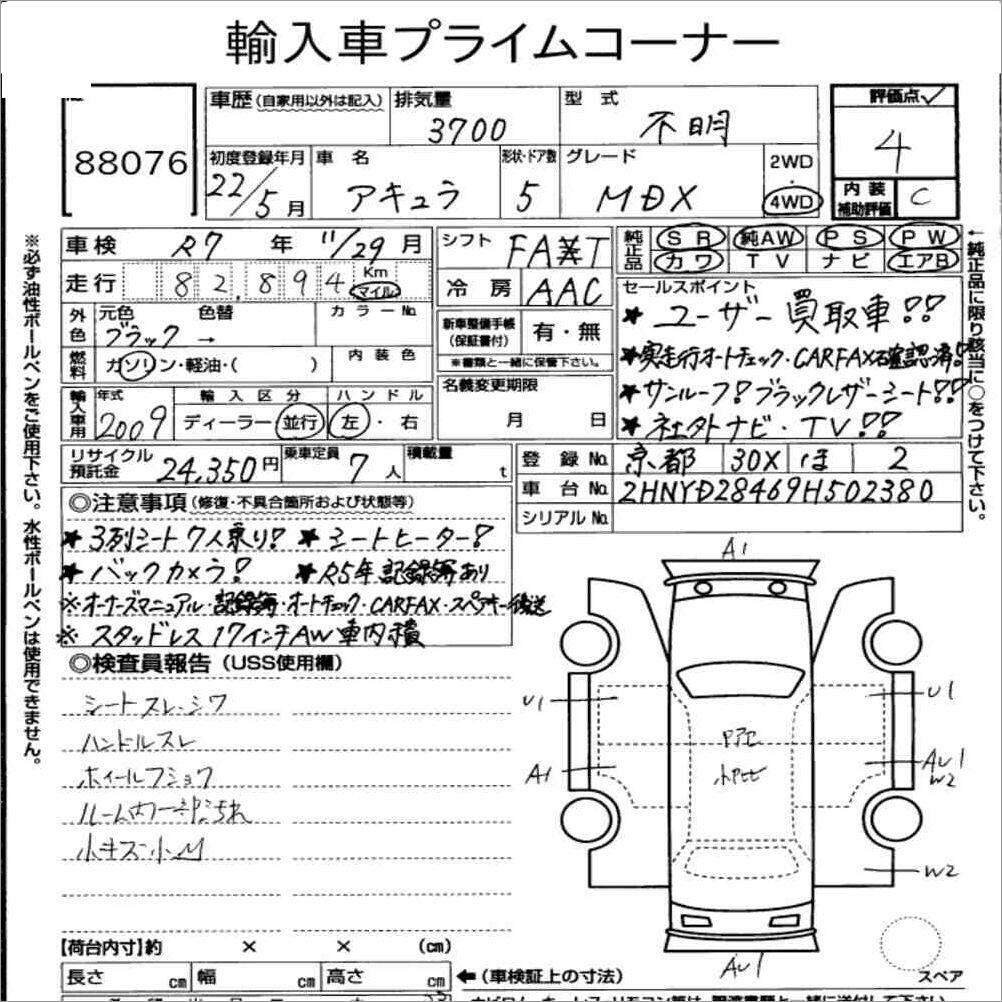 輸入車プライムコーナー
88076
車歴(自家用以外は記入)
排気量
3700
型式
不明
評価点
4
初度登録年月
22/5月
車名
アキュラ
形状・ドア数
5
グレード
MDX
2WD
・
4WD
内装
補助評価
C
車検 R7 年 11/29 月
走行 82,894 Km
マイル
シフト FAT
純正品
SR 純AW PS PW
カワ TV ナビ エアB
冷房 AAC
外色
元色 色替
ブラック →
カラーNo.
燃料
ガソリン・軽油・( )
内装色
新車整備手帳
(保証書付)
有・無
※書類と一緒に保管下さい。
セールスポイント
★ユーザー買取車!!
★実走行オートチェック・CARFAX確認済!
★サンルーフ!ブラックレザーシート!!
★社外ナビ・TV!!
輸入車用
年式
2009
輸入区分
ディーラー・並行
ハンドル
左・右
名義変更期限
月 日
リサイクル
預託金
24,350円
乗車定員
7人
積載量
t
登録No. 京都 30X ほ 2
車台No. 2HNYD28469H502380
シリアルNo.
◎注意事項(修復・不具合箇所および状態等)
★3列シート7人乗り! ★シートヒーター!
★バックカメラ! ★R5年記録簿あり
※オーナーズマニュアル・記録簿・オートチェック・CARFAX・スペアキー後送
※スタッドレス17インチAW車内積
◎検査員報告(USS使用欄)
シートスレ・シワ
ハンドルスレ
ホイールフショク
小キズ小凹
A1
U1
U1
A1
AU1
W2
W2
AU1
スペア
【荷台内寸】約 × × (cm)
長さ cm 幅 cm 高さ cm
←(車検証上の寸法)
※必ず油性ボールペンをご使用下さい。水性ボールペンは使用できません。
←純正品に限り該当に○をつけて下さい。